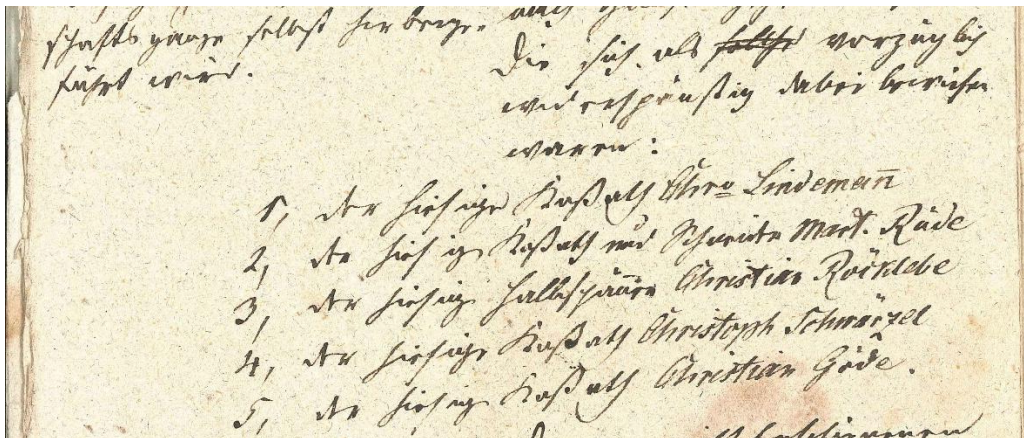 schaftsgange selbst herbeige-
führt wird.
die sich als solche vorzüglich
widerspänstig dabei bewiesen
waren:
1, der hiesige Koßath Chro Lindeman̅
2, der hiesige Koßath und Schneider Mart. Räde
3, der hiesige Halbspänner Christian Röcklebe
4, der hiesige Koßath Christoph Schwärzel
5, der hiesige Koßath Christian Göde.